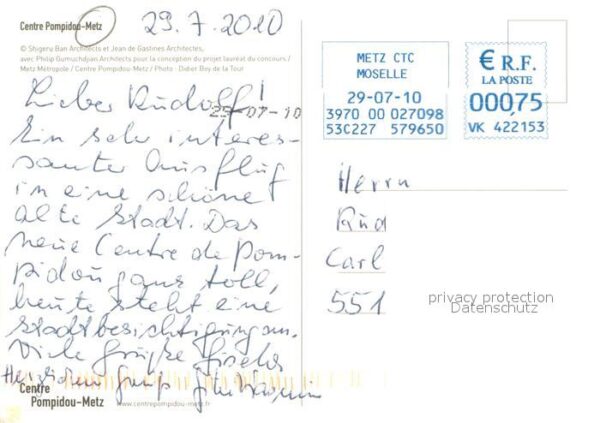 Centre Pompidou-Metz
29.7.2010
© Shigeru Ban Architects et Jean de Gastines Architectes,
avec Philip Gumuchdjian Architects pour la conception du projet lauréat du concours /
Metz Métropole / Centre Pompidou-Metz / Photo : Didier Boy de la Tour
Lieber Rudolf!
29-07-10
Ein sehr interes-
santer Ausflug
in eine schöne
alte Stadt. Das
neue Centre de Pom-
pidou ganz toll,
heute steht eine
Stadtbesichtigung an.
Viele Grüße Gisela
Herzlichen Gruß
Centre
Pompidou-Metz
www.centrepompidou-metz.fr
METZ CTC
MOSELLE
29-07-10
3970 00 027098
53C227 579650
€ R.F.
LA POSTE
000,75
VK 422153
Herrn
Rud
Carl
551
privacy protection
Datenschutz